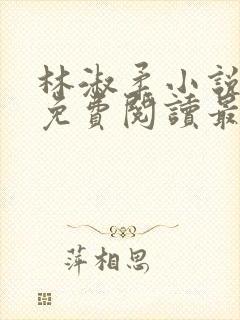 林淑柔小說
免費閱讀最
萍相思